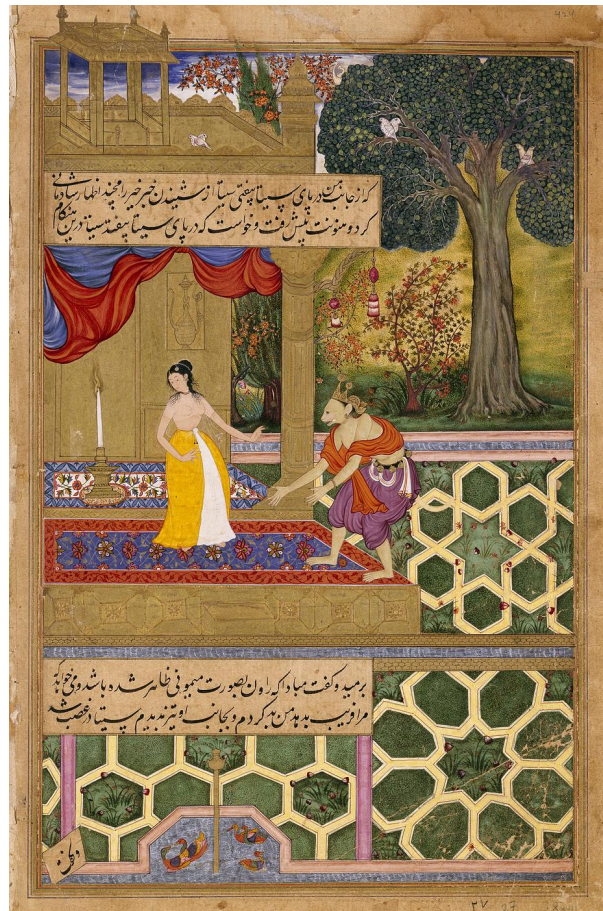 که از جانب من در پای سیتا بیفتی سیتا از شنیدن خبر خیر رامچند اظهار شادمانی
کرد و منونت پیش رفت و خواست که در پای سیتا بیفتد سیتا درین هنگام
برمید و گفت مبادا که راون بصورت میمونی ظاهر شده باشد و می خواهد که
مرا فریب بدهد من هرگز و بجانب او تیز ندیدم سیتا در غضب شد
۲۷ 27